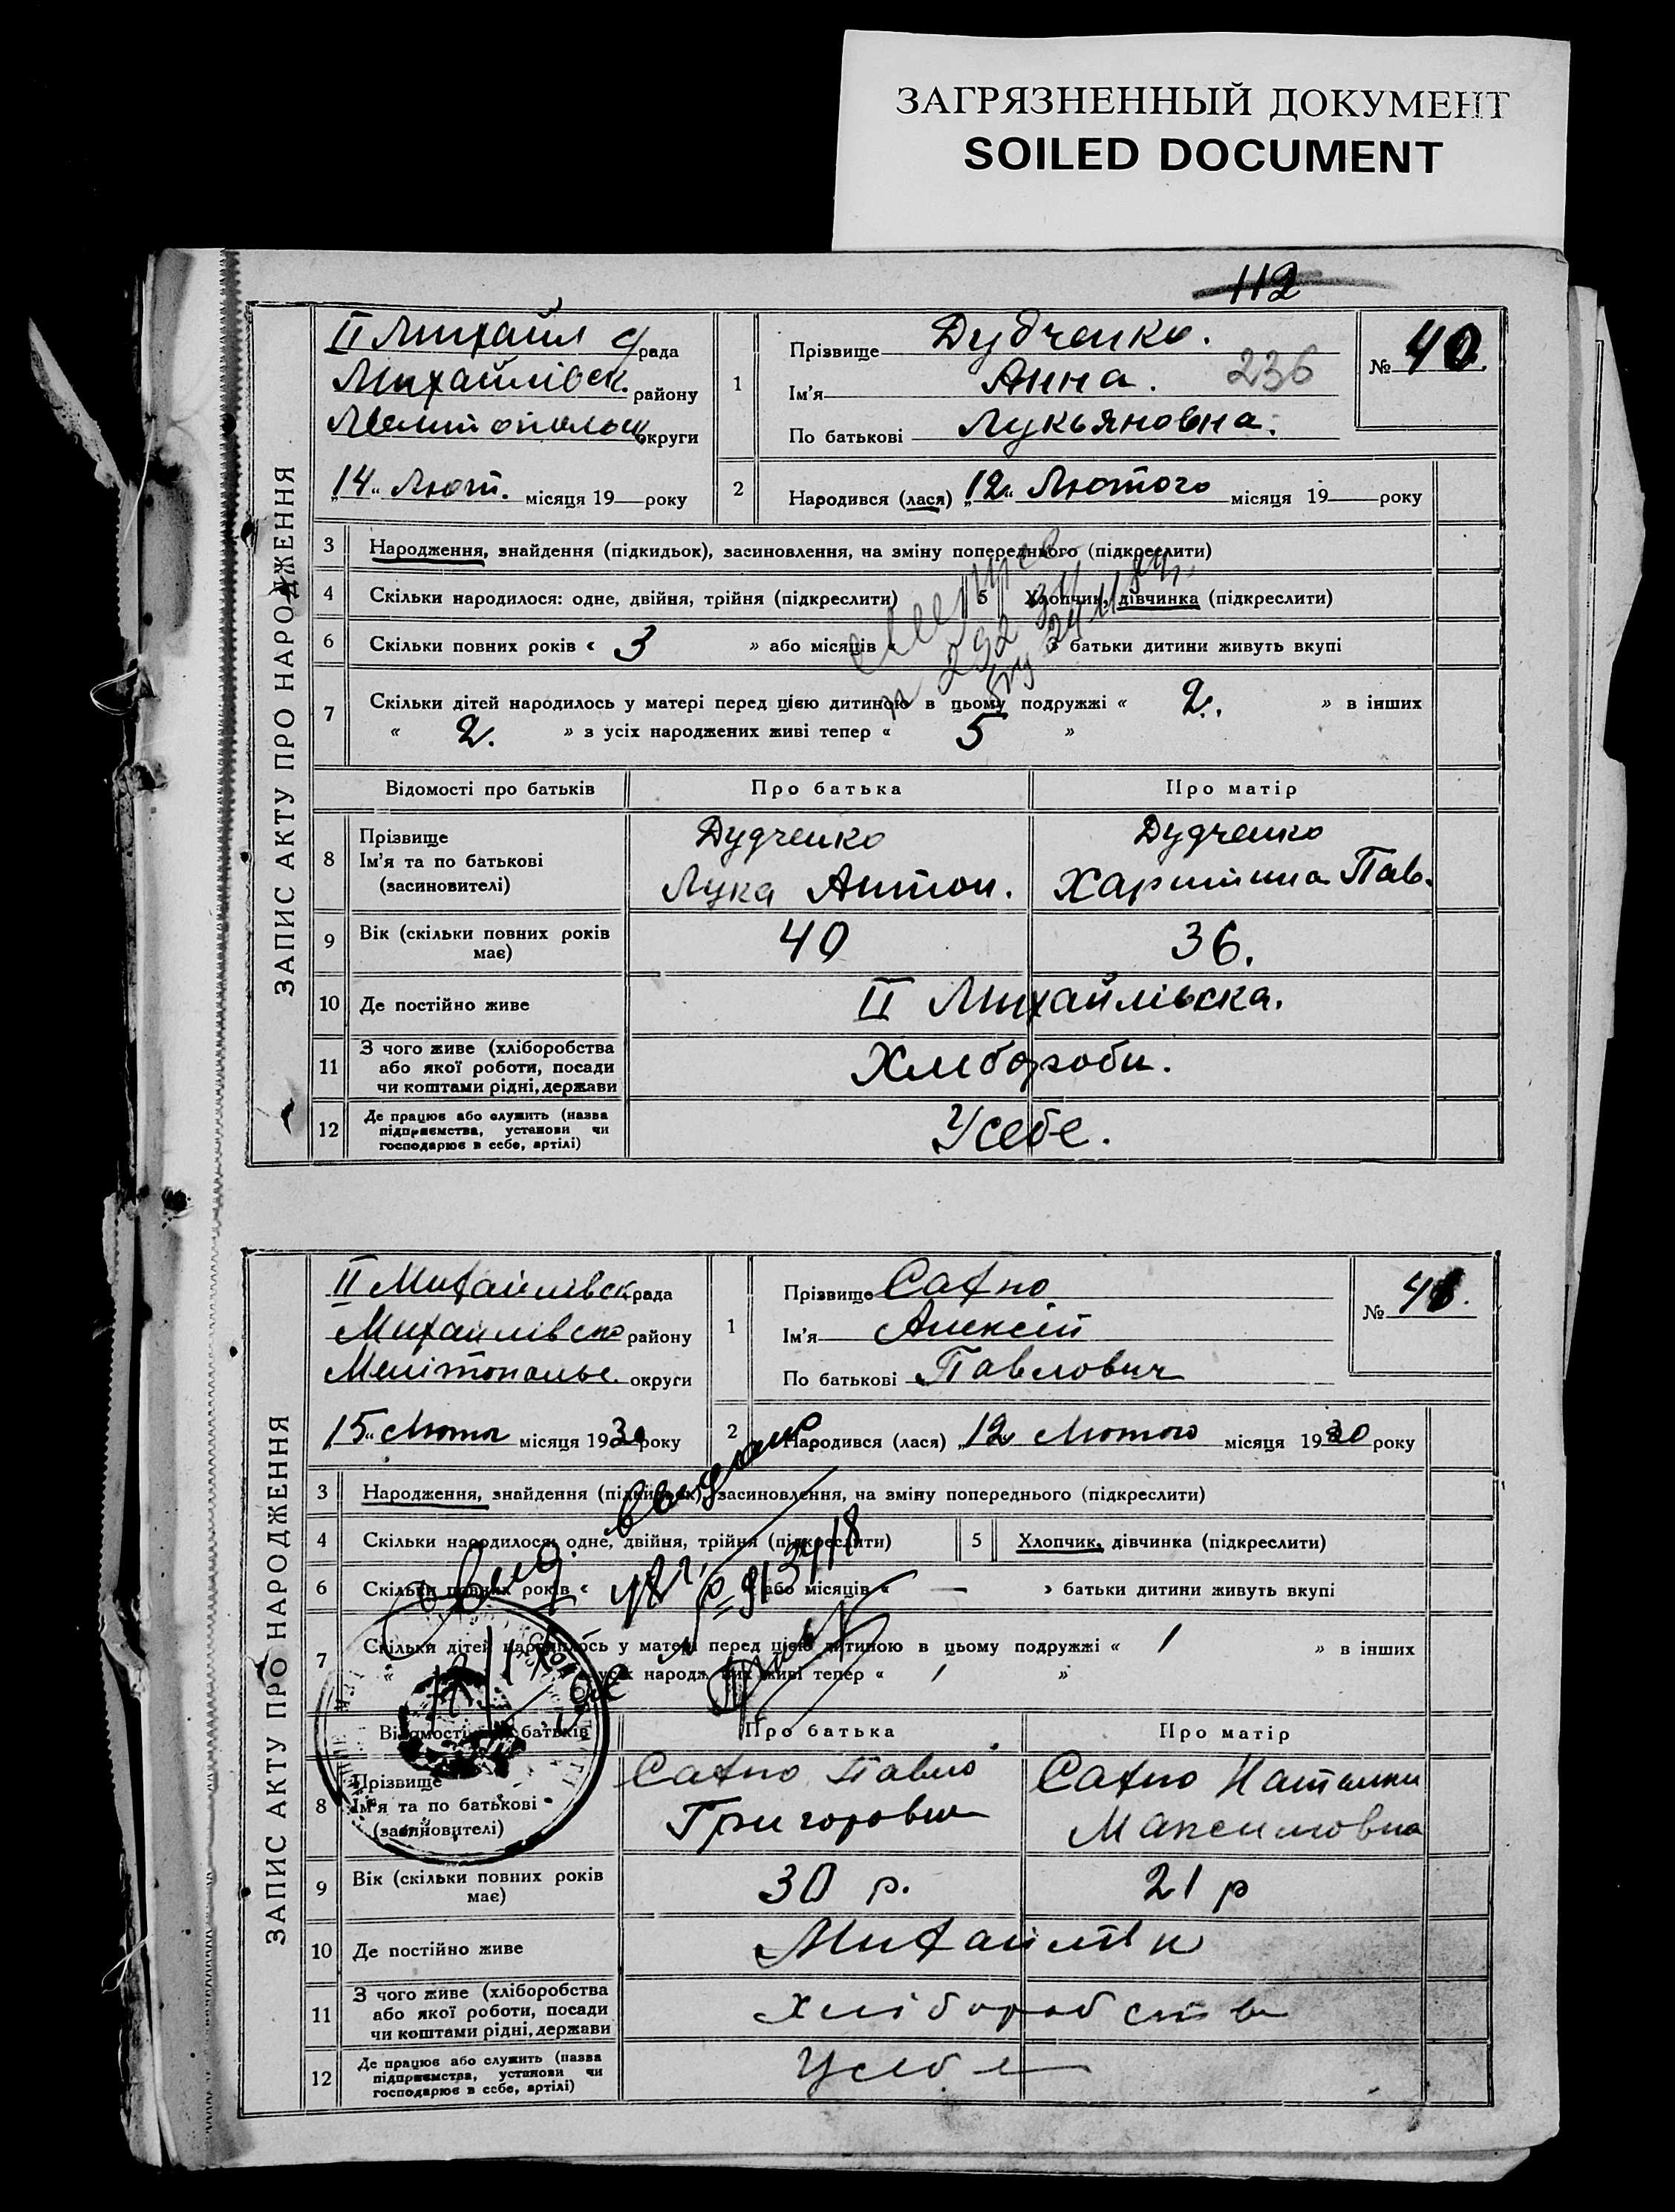 ЗАГРЯЗНЕННЫЙ ДОКУМЕНТ
SOILED DOCUMENT
112
ЗАПИС АКТУ ПРО НАРОДЖЕННЯ
II Михайл с/рада
Михайлівск. району
округи
„14“ Лют. місяця 19 року
1
Прізвище Дудченко.
Ім'я Анна. 236
По батькові Лукьяновна.
№ 40.
2
Народився (лася) „12“ Лютого місяця 19 року
3 Народження, знайдення (підкидьок), засиновлення, на зміну попереднього (підкреслити)
4 Скільки народилося: одне, двійня, трійня (підкреслити) 5 Хлопчик, дівчинка (підкреслити)
6 Скільки повних років « 3 » або місяців « » батьки дитини живуть вкупі
7 Скільки дітей народилось у матері перед цією дитиною в цьому подружжі « 2. » в інших
« 2. » з усіх народжених живі тепер « 5 »
Відомості про батьків Про батька Про матір
8 Прізвище
Ім'я та по батькові
(засиновителі)
Дудченко
Лука Антон.
Дудченко
Харитина Пав.
9 Вік (скільки повних років
має)
40 36.
10 Де постійно живе II Михайлівска.
11 З чого живе (хліборобства
або якої роботи, посади
чи коштами рідні, держави
Хлібороби.
12 Де працює або служить (назва
підприємства, установи чи
господарює в себе, артілі)
Усебе.
ЗАПИС АКТУ ПРО НАРОДЖЕННЯ
II Михайлівск рада
Михайлівско району
округи
„15“ місяця 1930 року
1
Прізвище Сахно
Ім'я Алексій
По батькові Павлович
№ 41.
2
Народився (лася) „12“ Лютого місяця 1930 року
3 Народження, знайдення (підкидьок), засиновлення, на зміну попереднього (підкреслити)
4 Скільки народилося: одне, двійня, трійня (підкреслити) 5 Хлопчик, дівчинка (підкреслити)
6 Скільки повних років « » або місяців « — » батьки дитини живуть вкупі
7 Скільки дітей народилось у матері перед цією дитиною в цьому подружжі « 1 » в інших
« » з усіх народжених живі тепер « 1 »
Відомості про батьків Про батька Про матір
8 Прізвище
Ім'я та по батькові
(засиновителі)
Сахно Павло
Григорович
Сахно Наталки
Максимовна
9 Вік (скільки повних років
має)
30 р. 21 р
10 Де постійно живе
11 З чого живе (хліборобства
або якої роботи, посади
чи коштами рідні, держави
хліборобств
12 Де працює або служить (назва
підприємства, установи чи
господарює в себе, артілі)
Усебе